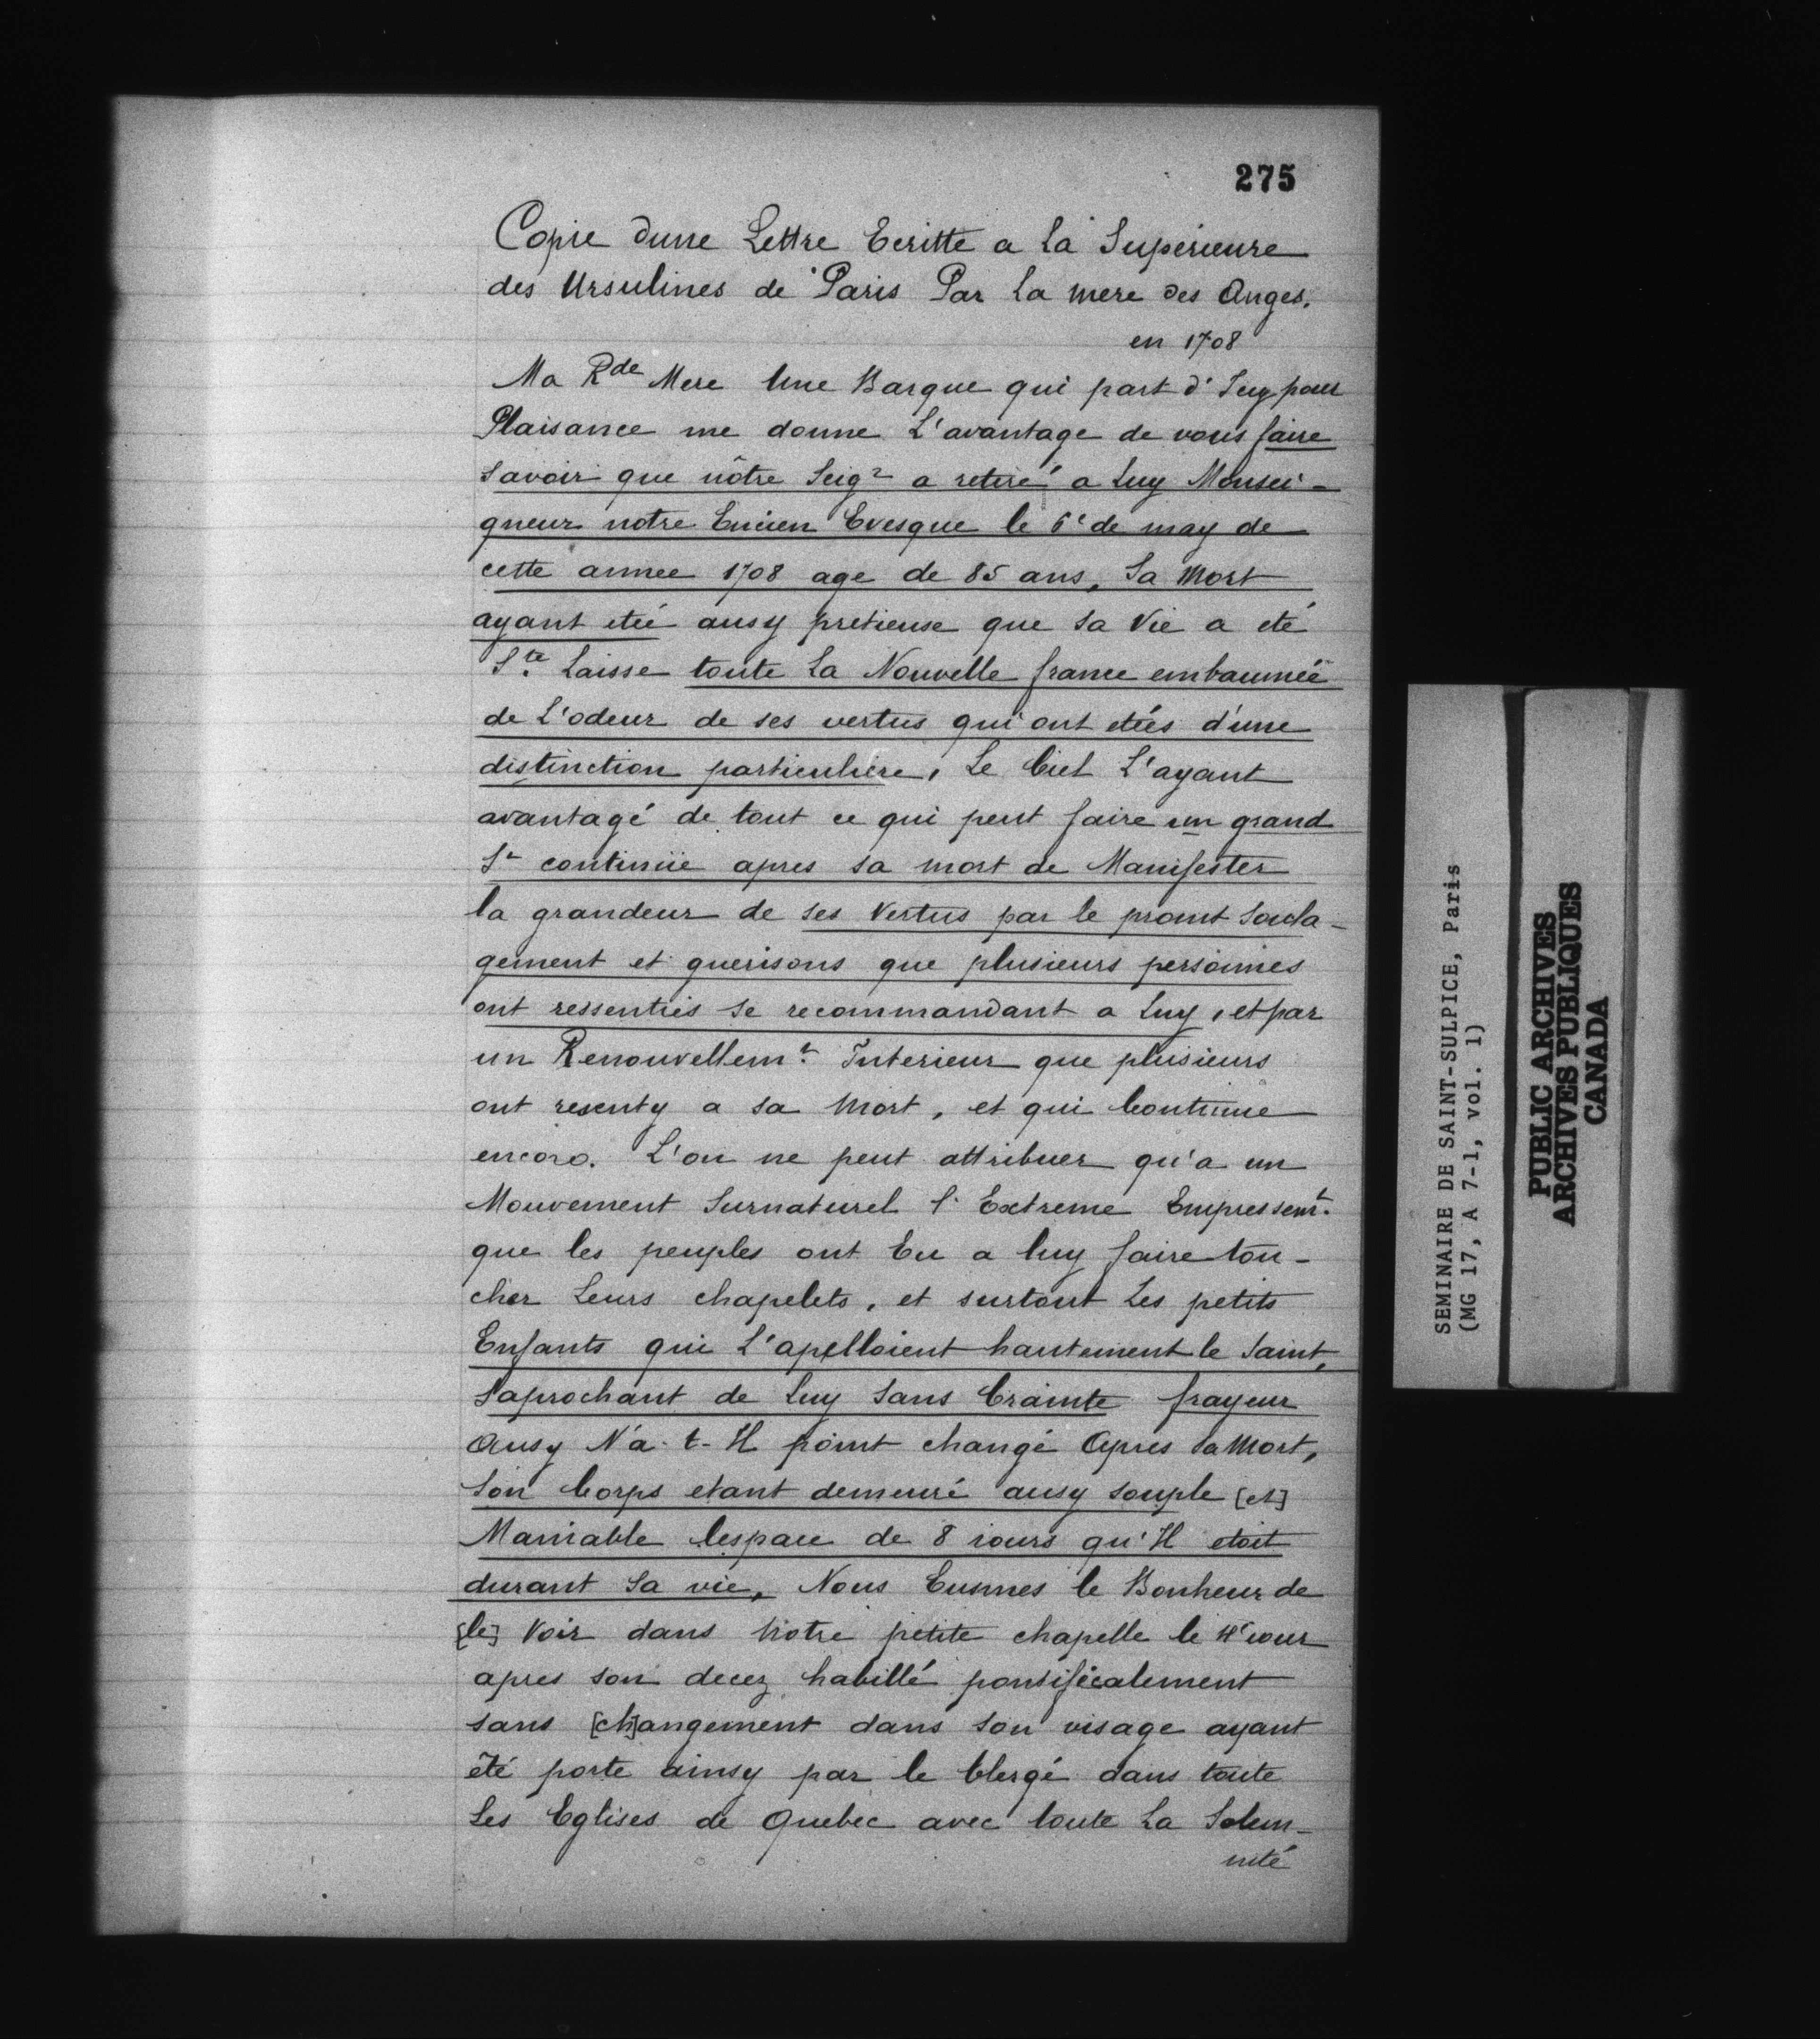 275
Copie dune Lettre Ecritte a la Supérieure
des Ursulines de Paris Par la mere des Anges.
en 1708
Ma Rde Mere Une Barque qui part d'Icy pour
Plaisance me donne L'avantage de vous faire
savoir que nôtre Seigr a retiré a Luy Monsei-
gneur notre Encien Evesque le 6e de may de
cette annee 1708 age de 85 ans, Sa Mort
ayant eté ausy pretieuse que sa Vie a eté
Ste. Laisse toute la Nouvelle france embaumée
de L'odeur de ses vertus qui ont etés d'une
distinction particulière, Le Ciel L'ayant
avantagé de tout ce qui peut faire un grand
St continüe apres sa mort de Manifester
la grandeur de ses Vertus par le promt soula-
gement et guerisons que plusieurs personnes
ont ressenties se recommandant a Luy, et par
un Renouvellemt. Interieur que plusieurs
ont resenty a sa Mort, et qui Continue
encore. L'on ne peut attribuer qu'a un
Mouvement Surnaturel l'Extreme Empressemt.
que les peuples ont Eu a luy faire tou-
cher Leurs chapelets, et surtout Les petits
Enfants qui L'apelloient hautement le Saint,
s'aprochant de Luy Sans Crainte frayeur
Ausy N'a-t-Il point changé Après sa Mort,
Son Corps etant demeuré ausy souple [et]
Maniable lespace de 8 iours qu'Il etoit
durant Sa vie, Nous Eusmes le Bonheur de
[le] Voir dans Notre petite chapelle le 4e iour
apres son decez habillé pontificalement
sans [ch]angement dans son visage ayant
été porte ainsy par le Clergé dans toute
Les Eglises de Quebec avec toute La Solem-
nité
SEMINAIRE DE SAINT-SULPICE, Paris
(MG 17, A 7-1, vol. 1)
PUBLIC ARCHIVES
ARCHIVES PUBLIQUES
CANADA